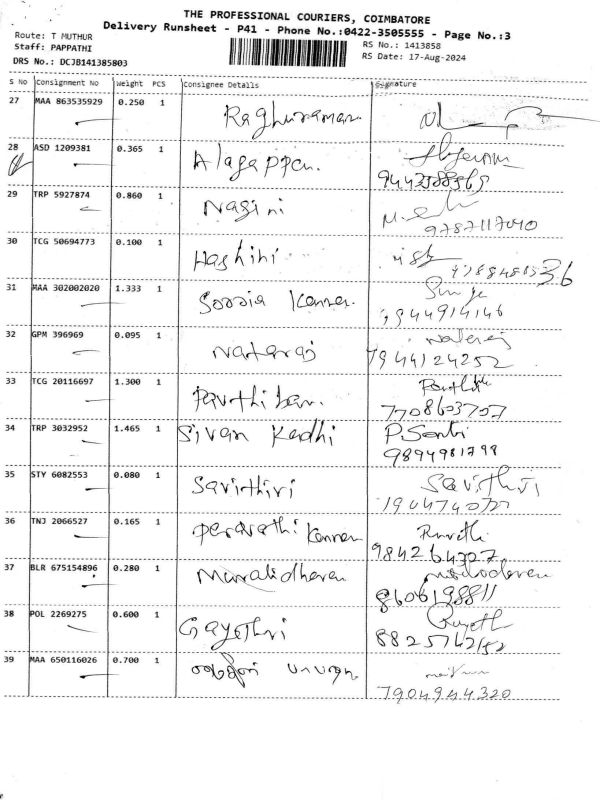 THE PROFESSIONAL COURIERS, COIMBATORE
Delivery Runsheet - P41 - Phone No.:0422-3505555 - Page No.:3
Route: T MUTHUR
RS No.: 1413858
Staff: PAPPATHI
RS Date: 17-Aug-2024
DRS No.: DCJB141385803
S No Consignment No Weight PCS Consignee Details Signature
27 MAA 863535929 0.250 1 Raghuraman
28 ASD 1209381 0.365 1 Alagappan.
29 TRP 5927874 0.860 1 Nagini
9787117040
30 TCG 50694773 0.100 1 Hashini
31 MAA 302002020 1.333 1
32 GPM 396969 0.095 1 Nataraj Nataraj
7944124252
33 TCG 20116697 1.300 1
7708603707
34 TRP 3032952 1.465 1 Sivan Kadhi
9894981798
35 STY 6082553 0.080 1 Savithiri Savithiri
36 TNJ 2066527 0.165 1
984264327
37 BLR 675154896 0.280 1 Muralidharan
8606198811
38 POL 2269275 0.600 1 Gayathri
8825742152
39 MAA 650116026 0.700 1
7904944320